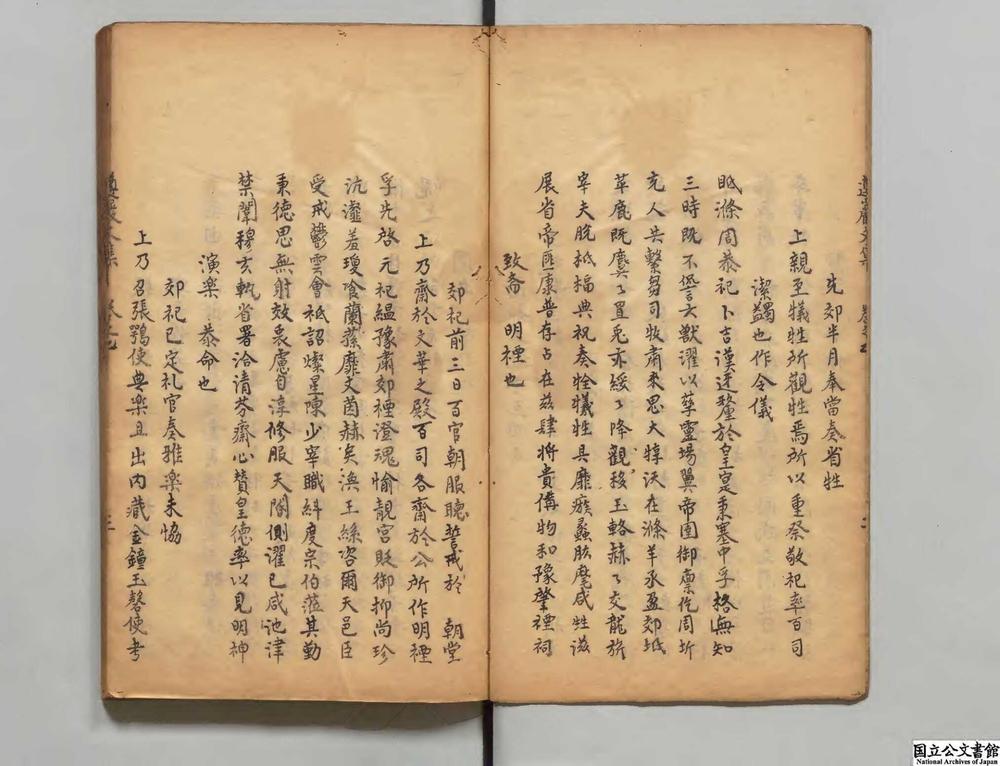 先郊半月奉當奏省牲
上親至犧牲所觀牲焉所以重祭敬祀率百司
潔蠲也作令儀
眂滌周恭祀卜吉漢迓釐於皇寔秉塞中孚格無知
三時既不愆六獸濯以孳靈場翼帝圉御廩佇周圻
充人共繫芻司牧肅來思大牲沃在滌羊丞盈郊坻
苹鹿既麌々罝兎亦綏々降觀移玉輅赫々交龍旂
宰夫脫柢楅典祝奏牷犧牲具靡瘯蠡肱麾咸牲滋
展省帝匪康普存占在茲肆將貴備物和豫肇禋祠
致齋 明禋也
郊祀前三日百官朝服聽誓戒於 朝堂
上乃齋於文華之殿百司各齋於公所作明禋
孚先啓元祀縕豫肅郊禋澄魂愉靚宮貶御抑尚珍
沆瀣羞瓊喰蘭蓀靡文茵赫矣渙王絲咨爾天邑臣
受戒鬱雲會祗詔燦星陳少宰職糾度宗伯蒞其勤
秉德思無射效衷慮自淳修服天閽側濯已咸池津
禁闈穆玄執省署洽清芬齋心贊皇德率以見明神
演樂 恭命也
郊祀已定礼官奏雅楽未恊
上乃召張鶚使典楽且出内藏金鐘玉磬使考
國立公文書館
National Archives of Japan